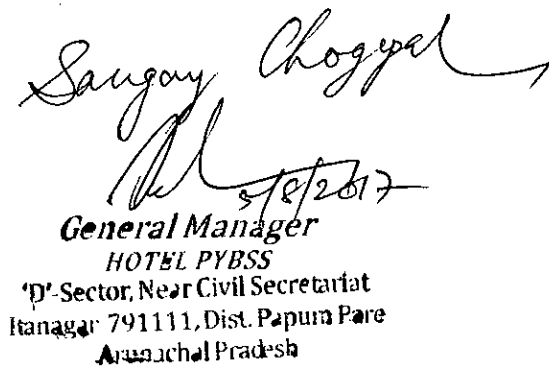 Sangay Chogyal
5/8/2017
General Manager
HOTEL PYBSS
'D'-Sector, Near Civil Secretariat
Itanagar 791111, Dist. Papum Pare
Arunachal Pradesh